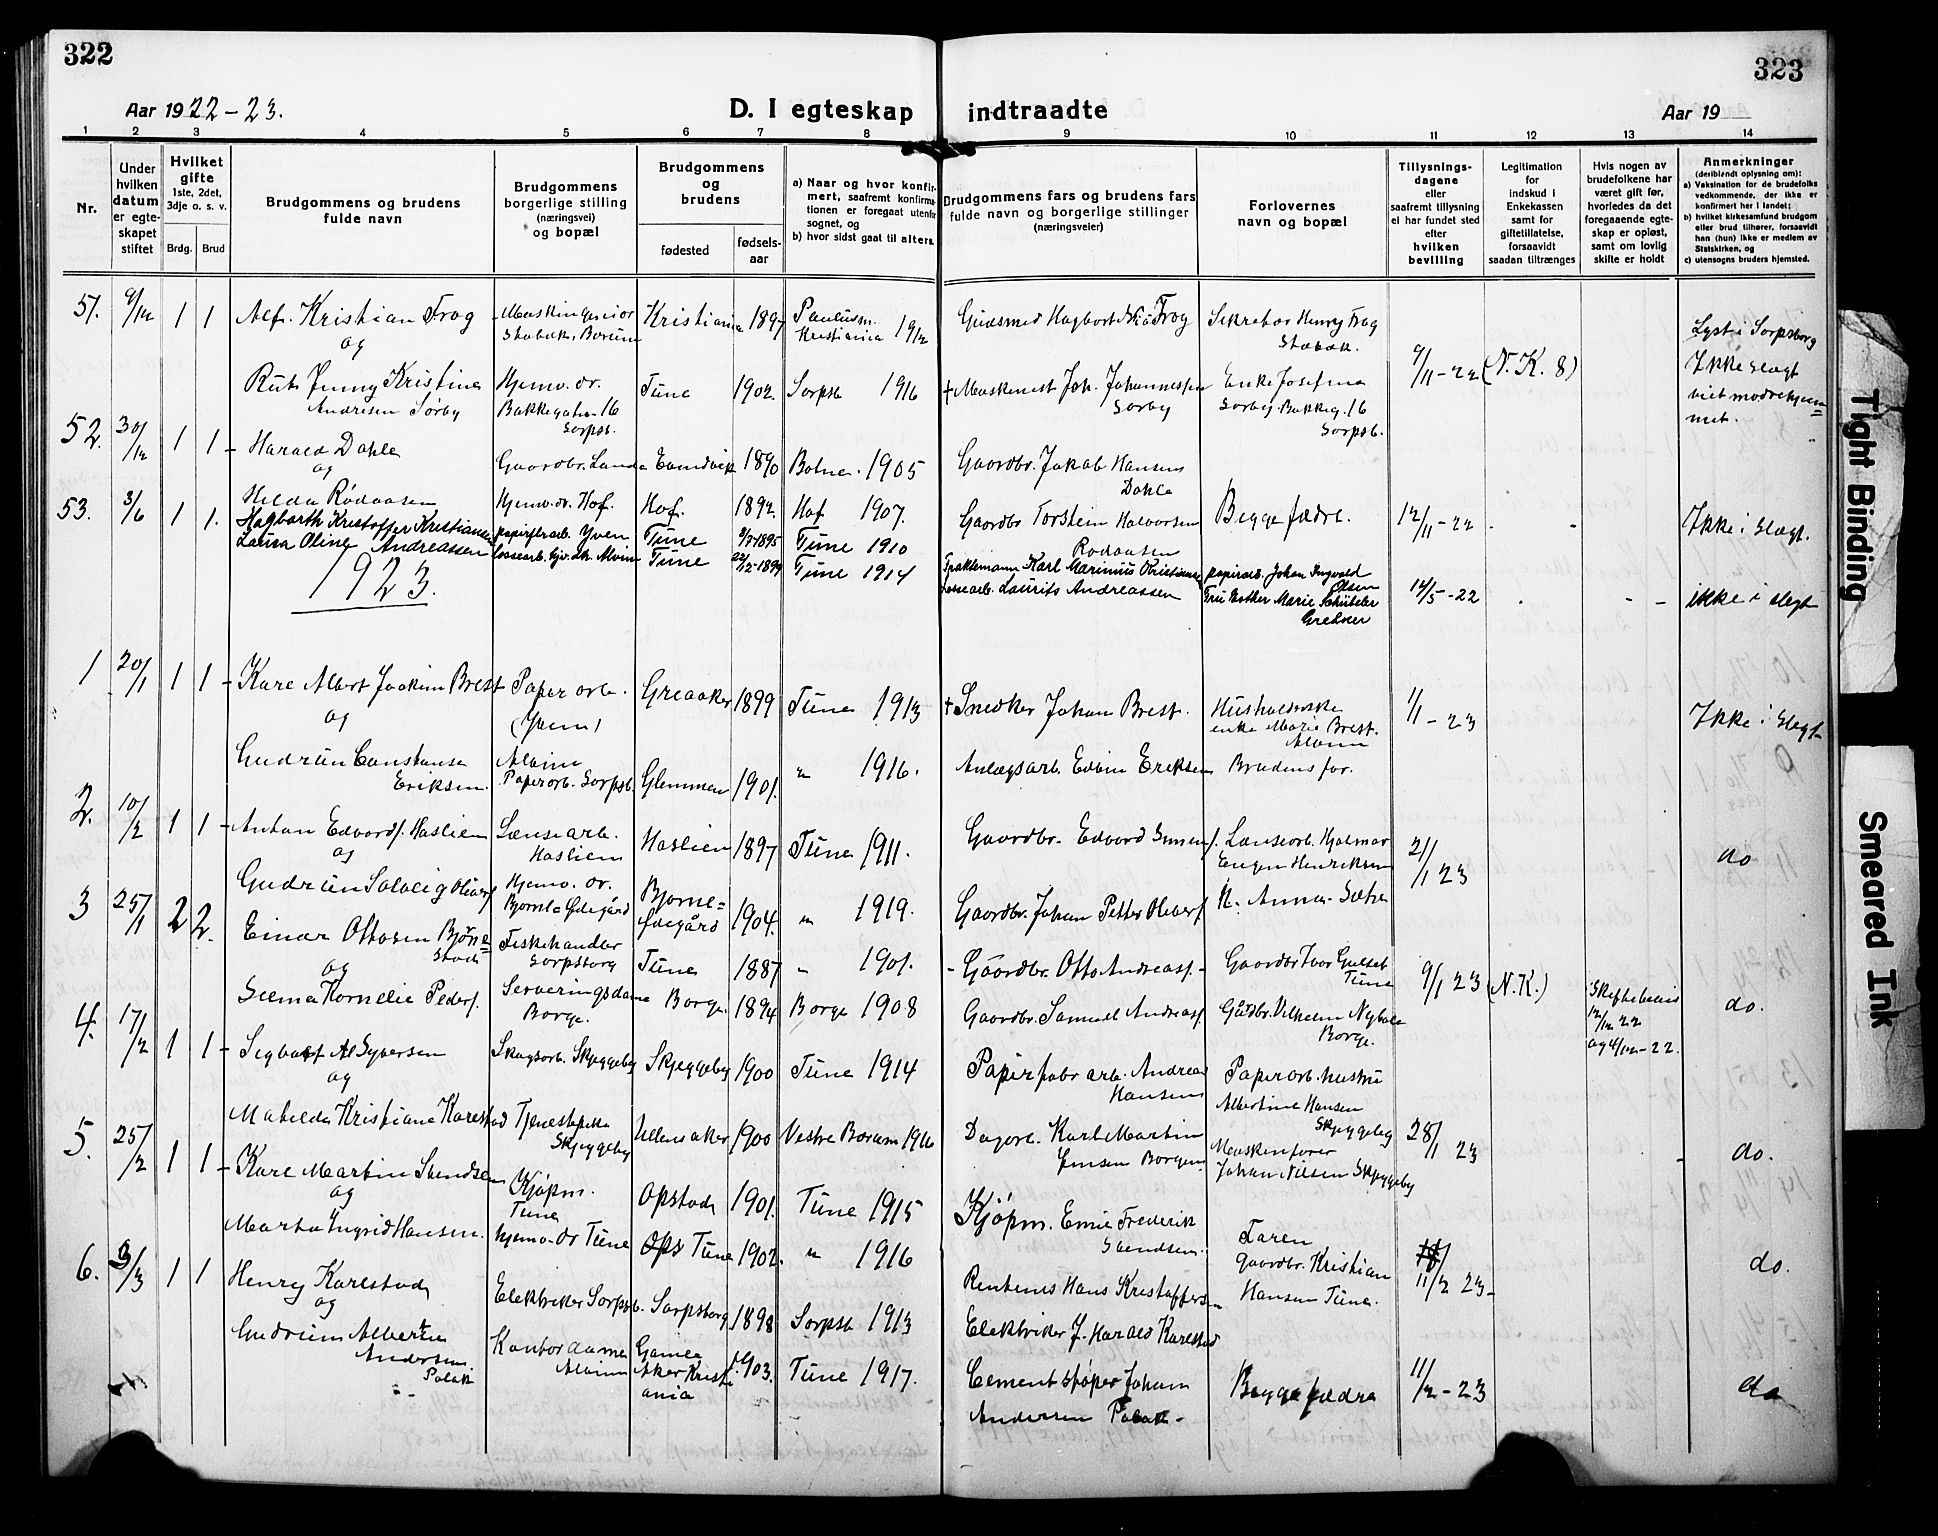 322
323
Aar 1922-23.
D. I egteskap indtraadte
Aar 19
1 2 3 4 5 6 7 8 9 10 11 12 13 14
Nr.
Under hvilken datum er egteskapet stiftet
Hvilket gifte
1ste, 2det, 3dje o. s. v.
Brdg. Brud
Brudgommens og brudens fulde navn
Brudgommens borgerlige stilling (næringsvei) og bopæl
Brudgommens og brudens
fødested
fødsels-aar
a) Naar og hvor konfirmert, saafremt konfirmationen er foregaat utenfor sognet, og
b) hvor sidst gaat til alters.
Brudgommens fars og brudens fars fulde navn og borgerlige stillinger (næringsveier)
Forlovernes navn og bopæl
Tillysnings-dagene eller saafremt tillysning ei har fundet sted efter hvilken bevilling
Legitimation for indskud i Enkekassen samt for giftetillatelse, forsaavidt saadan tiltrænges
Hvis nogen av brudefolkene har været gift før, hvorledes da det foregaaende egteskap er opløst, samt om lovlig skifte er holdt
Anmerkninger
(deriblandt oplysning om):
a) Vaksination for de brudefolks vedkommende, der ikke er konfirmert her i landet;
b) hvilket kirkesamfund brudgom eller brud tilhører, forsaavidt han (hun) ikke er medlem av Statskirken, og
c) utensogns bruders hjemsted.
51. 9/12 1 1 Alf. Kristian Frog Kristiania 1897 Kristiania 1912 Sekretær Henry Frog Stabæk.
og
Rut Jenny Kristine Andresen Sørby Hjemv. dr. Bakkegaten 16 Sarpsb. Tune 1902. Sarpsb 1916 Joh. Johannessen Sørby Enke Josefine Sørby Bakkeg. 16 Sarpsb. 9/11-22 (N. K. 8) Ikke slægt
52. 30/12 1 1 Harald Dahle Gaardbr. 1890 Botne 1905 Gaardbr. Jakob Hansen Dahle
og
Hilda Rødaasen Hjemv. dr. Hof. Hof. 1892. Hof 1907. Gaardbr Torstein Halvorsen Rødaasen Begge fædre. 12/11-22 Ikke i slægt.
53. 3/6 1 1. Hagbarth Kristoffer Kristiansen Yven Tune 1895 Tune 1910 Karl Marinius Kristiansen Johan Ingvald Olsen
Laura Oline Andreassen Alvim Tune 1899 Tune 1914 Laurits Andreassen 14/5-22 ikke i slegt
1923.
1 20/1 1 1 Kare Albert Joakim Brest Papirarb. Greaaker 1899 Tune 1913 + Snedker Johan Brest. enke Marie Brest. Alvim 1/1-23 Ikke i slegt
og
Gudrun Constanse Eriksen. Alvim Papirarb. Sarpsb. Glemmen 1901. " 1916. Anlægsarb. Edvin Eriksen Brudens far.
2. 10/2 1 1 Anton Edvards. Haslien Lænsearb. Haslien Haslien 1897 Tune 1911. Gaardbr. Edvard Lænsearb. Hjalmar Eugen Henriksen 21/1 23 do
og
Gudrun Solveig Olivers Hjemv. dr. Bjørnl. Ødegård Bjørne=Ødegård 1904. " 1919. Gaardbr. Johan Petter Olivers Anna Sætre
3 25/1 2 2. Einar Ottosen Bjørnestad Fiskehandler Sarpsborg Tune 1887 " 1901. Gaardbr. Otto Andreass. Gaardbr Ivar Tune 9/1 23 (N.K.) do.
og
Selma Kornelie Peders. Serveringsdame Borge. Borge. 1894 Borge 1908 Gaardbr. Samuel Andreass. Gårdbr. Vilhelm Borge. 12/12 22 og 4/12-22.
4. 17/2 1 1 Sigvart Al Syversen Skogsarb. Skjeggeby Skjeggeby 1900 Tune 1914 Papirfabr arb. Andreas Hansen Papirarb. hustru Albertine Hansen Skjeggeby
og
Matilde Kristiane Karlstad Tjenestepike Skjeggeby Ullensaker 1900 Vestre Bærum 1916 Dagarb. Karl Martin Jensen Borgen Maskinfører Johan Nilsen Skjeggeby 28/1 23 do.
5. 25/2 1 1 Kare Martin Svendsen Kjøpm. Tune Opstad 1901. Tune 1915 Kjøpm. Emil Frederik Svendsen.
og
Marta Ingrid Hansen. Hjemv. dr Tune Tune 1902. " 1916 Rentenist Hans Kristoffersen Faren Gaardbr. Kristian Hansen Tune. 11/2 23 do.
6. 3/3 1 1 Henry Karlstad Elektriker Sarpsb. Sarpsborg 1898 Sarpsb 1913 Elektriker J. Harald Karlstad
og
Gudrun Albertine Andersen Polak Kontordame Alvim Gamle Aker Kristiania 1903. Tune 1917. Cementstøper Johan Andersen Polak Begge fædre 11/2-23 do
Tight Binding
Smeared Ink